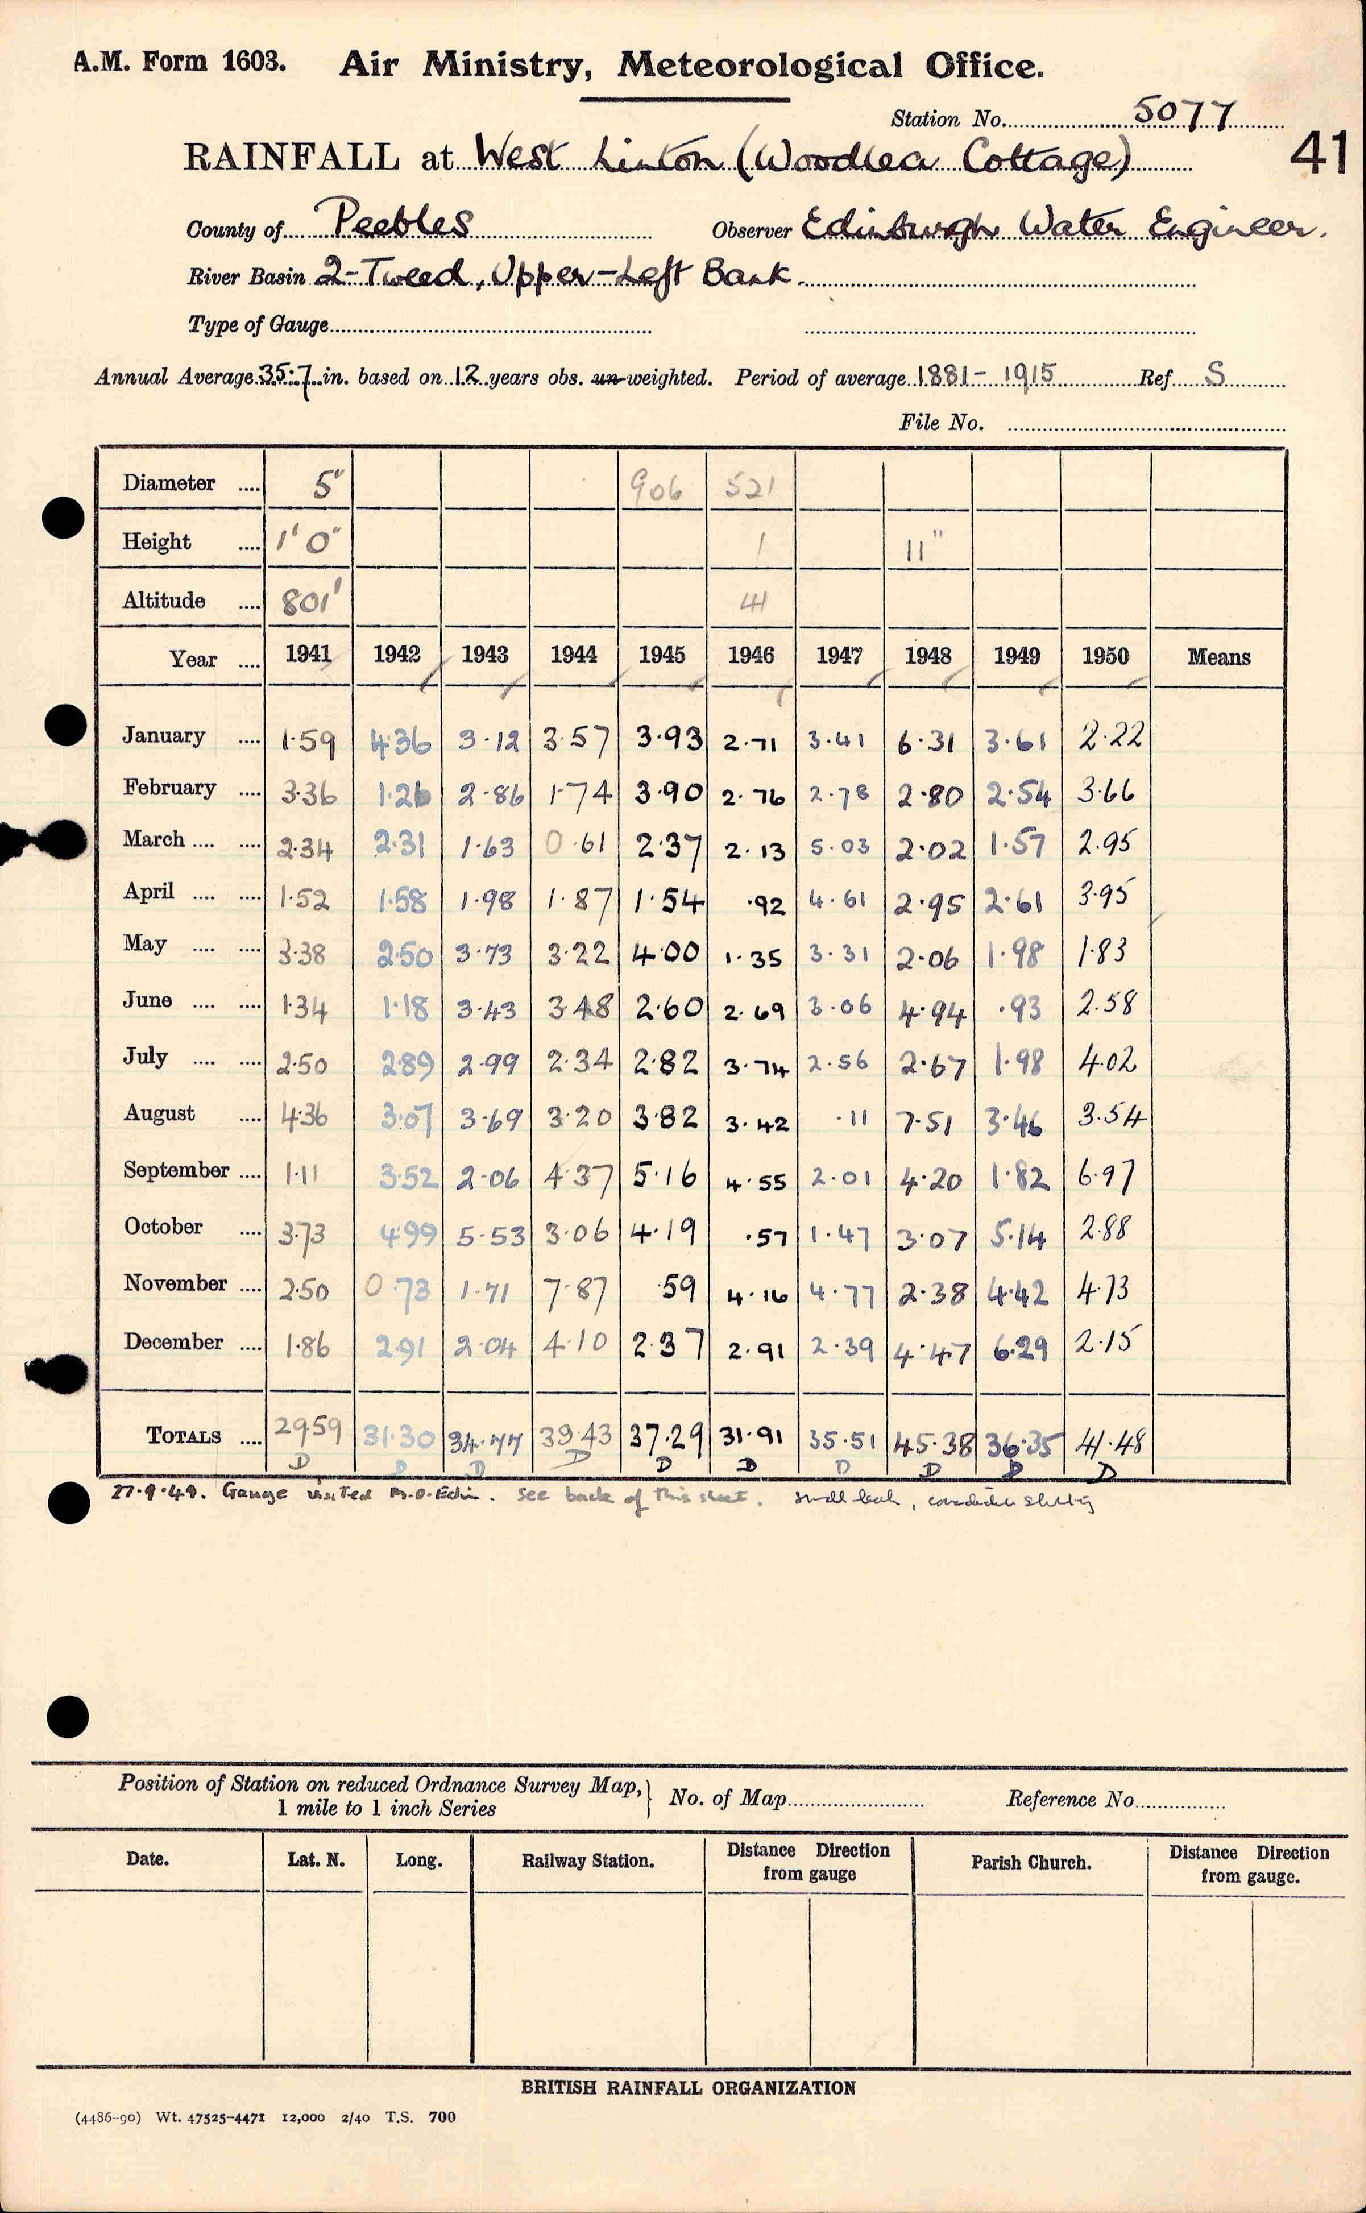 A.M. Form 1603. Air Ministry, Meteorological Office.
Station No. 5077
RAINFALL at West Linton (Woodlea Cottage) 41
County of Peebles Observer Edinburgh Water Engineer.
River Basin 2-Tweed, Upper-Left Bank.
Type of Gauge
Annual Average 35.7 in. based on 12 years obs. un-weighted. Period of average 1881- 1915 Ref S
File No.
Diameter .... 5" 906 521
Height .... 1' 0" 1 11"
Altitude .... 801' 41
Year .... 1941 1942 1943 1944 1945 1946 1947 1948 1949 1950 Means
January .... 1.59 4.36 3.12 3.57 3.93 2.71 3.41 6.31 3.61 2.22
February .... 3.36 1.26 2.86 1.74 3.90 2.76 2.78 2.80 2.54 3.66
March .... .... 2.34 2.31 1.63 0.61 2.37 2.13 5.03 2.02 1.57 2.95
April .... .... 1.52 1.58 1.98 1.87 1.54 .92 4.61 2.95 2.61 3.95
May .... .... 3.38 2.50 3.73 3.22 4.00 1.35 3.31 2.06 1.98 1.83
June .... .... 1.34 1.18 3.43 3.48 2.60 2.69 3.06 4.94 .93 2.58
July .... .... 2.50 2.89 2.99 2.34 2.82 3.74 2.56 2.67 1.98 4.02
August .... 4.36 3.07 3.69 3.20 3.82 3.42 .11 7.51 3.46 3.54
September .... 1.11 3.52 2.06 4.37 5.16 4.55 2.01 4.20 1.82 6.97
October .... 3.73 4.99 5.53 3.06 4.19 .57 1.47 3.07 5.14 2.88
November .... 2.50 0.73 1.71 7.87 .59 4.16 4.77 2.38 4.42 4.73
December .... 1.86 2.91 2.04 4.10 2.37 2.91 2.39 4.47 6.29 2.15
TOTALS .... 29.59 31.30 34.77 39.43 37.29 31.91 35.51 45.38 36.35 41.48
D D D D D D D D D D
27.9.49. Gauge visited M.O. Edin. See back of this sheet. small leak,
Position of Station on reduced Ordnance Survey Map, No. of Map Reference No.
1 mile to 1 inch Series
Date. Lat. N. Long. Railway Station. Distance Direction from gauge Parish Church. Distance Direction from gauge.
BRITISH RAINFALL ORGANIZATION
(4486-90) Wt. 47525-4471 12,000 2/40 T.S. 700